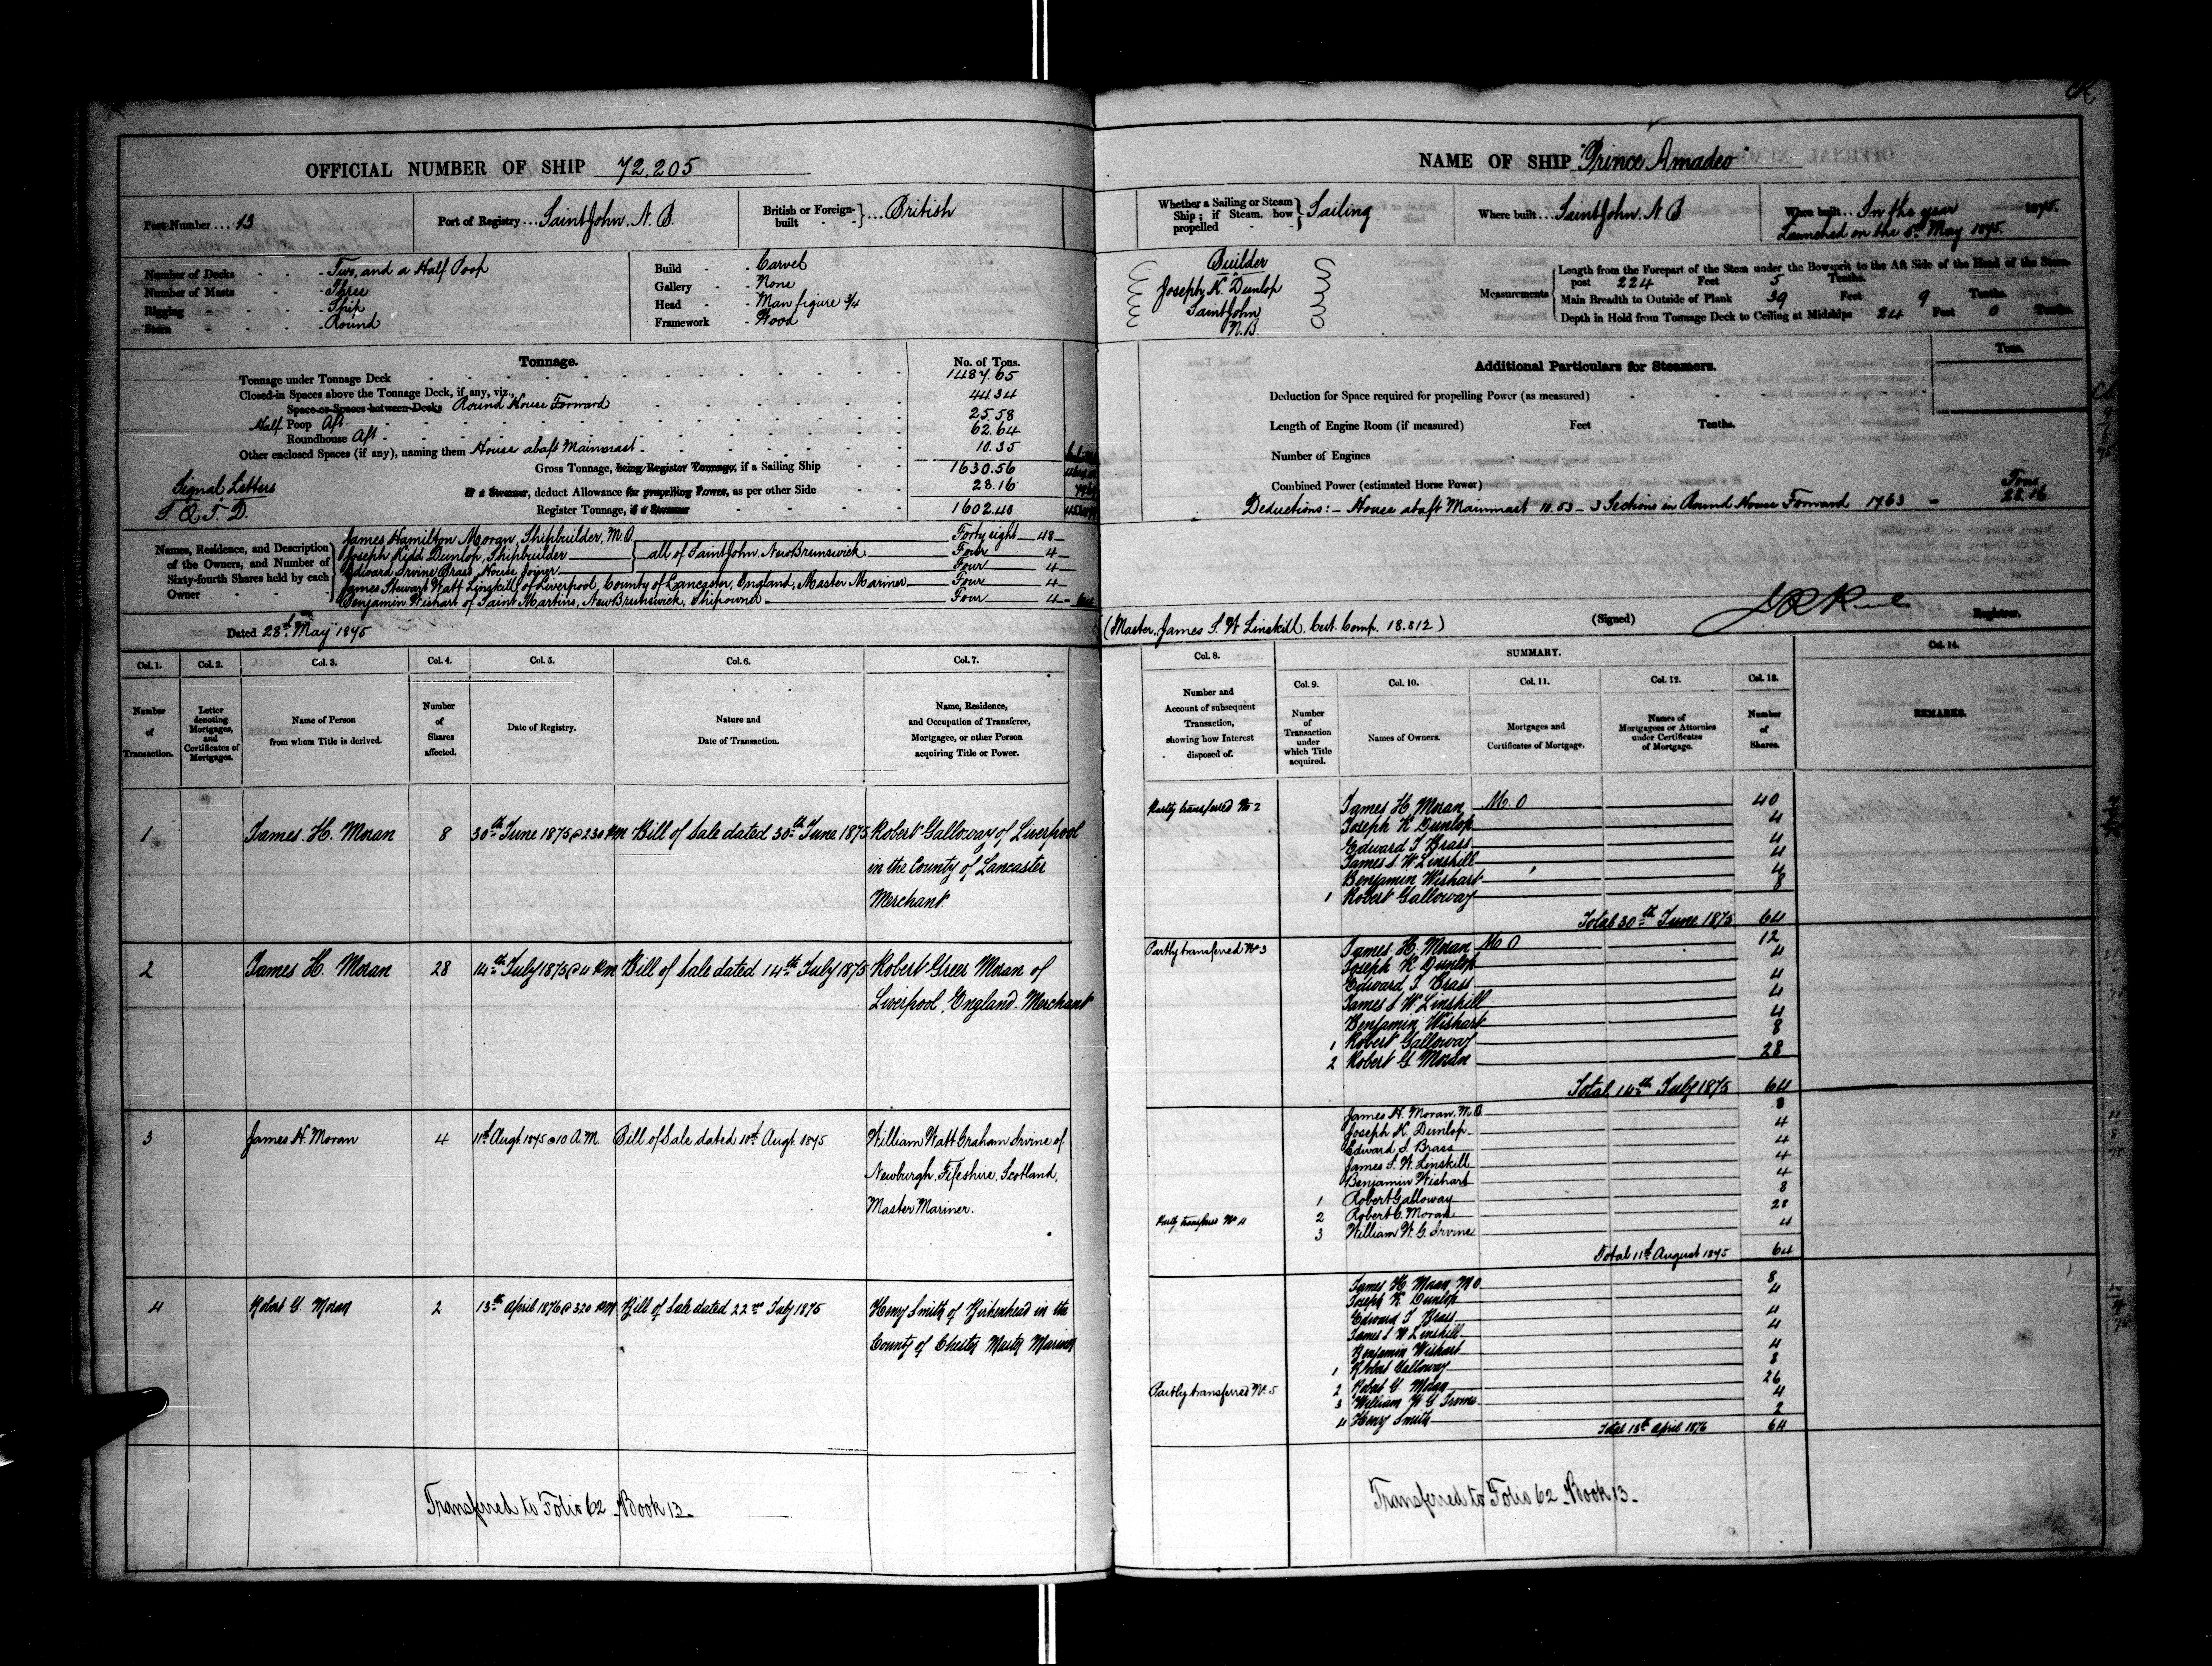 OFFICIAL NUMBER OF SHIP 72.205
Port Number ... 13
Port of Registry ... Saint John. N. B.
British or Foreign-built } ... British
Number of Decks - Two, and a Half Poop
Number of Masts - Three
Rigging - Ship
Stern - Round
Build - Carvel
Gallery - None
Head - Man figure 3/4
Framework - Wood
Tonnage.
No. of Tons.
Tonnage under Tonnage Deck 1487.65
Closed-in Spaces above the Tonnage Deck, if any, viz.,
Space or Spaces between Decks Round House Forward 44.34
Half Poop Aft 25.58
Roundhouse Aft 62.64
Other enclosed Spaces (if any), naming them House abaft Mainmast 10.35
Gross Tonnage, being Register Tonnage, if a Sailing Ship 1630.56
If a Steamer, deduct Allowance for propelling Power, as per other Side 28.16
Register Tonnage, if a Steamer 1602.40
Signal Letters
Names, Residence, and Description of the Owners, and Number of Sixty-fourth Shares held by each Owner
James Hamilton Moran, Shipbuilder, M.O. Forty eight 48
Joseph Kidd Dunlop, Shipbuilder } all of Saint John, New Brunswick Four 4
Edward Irvine Brass, House Joiner Four 4
James Stewart Watt Linskill of Liverpool, County of Lancaster, England, Master Mariner Four 4
Benjamin Wishart of Saint Martins, New Brunswick, Shipowner Four 4
Dated 28th May 1875
Col. 1. Col. 2. Col. 3. Col. 4. Col. 5. Col. 6. Col. 7.
Number of Transaction.
Letter denoting Mortgages, and Certificates of Mortgages.
Name of Person from whom Title is derived.
Number of Shares affected.
Date of Registry.
Nature and Date of Transaction.
Name, Residence, and Occupation of Transferee, Mortgagee, or other Person acquiring Title or Power.
1 James. H. Moran 8 30th June 1875 @ 2 30 PM Bill of Sale dated 30th June 1875 Robert Galloway of Liverpool
in the County of Lancaster
Merchant
2 James H. Moran 28 14th July 1875 @ 4 PM Bill of Sale dated 14th July 1875 Robert Greer Moran of
Liverpool, England. Merchant
3 James H. Moran 4 11th Augt. 1875 @ 10 A.M. Bill of Sale dated 10th Augt. 1875 William Watt Graham Irvine of
Newburgh, Fifeshire, Scotland,
Master Mariner.
4 Robert G. Moran 2 13th April 1876 @ 3 20 PM Bill of Sale dated 22nd July 1875 Henry Smith of Birkenhead in the
County of Chester Master Mariner
Transferred to Folio 62 - Book 13 -
NAME OF SHIP "Prince Amadeo"
Whether a Sailing or Steam Ship; if Steam, how propelled } Sailing
Where built ... Saint John. N. B.
When built ... In the year 1875.
Launched on the 5th May 1875.
Builder
Joseph K. Dunlop
Saint John
N.B.
Measurements
Length from the Forepart of the Stem under the Bowsprit to the Aft Side of the Head of the Stern-post 224 Feet 5 Tenths.
Main Breadth to Outside of Plank 39 Feet 9 Tenths.
Depth in Hold from Tonnage Deck to Ceiling at Midships 24 Feet 0 Tenths.
Additional Particulars for Steamers.
Tons.
Deduction for Space required for propelling Power (as measured)
Length of Engine Room (if measured) Feet Tenths.
Number of Engines
Combined Power (estimated Horse Power)
Deductions:- House abaft Mainmast 10.53 - 3 Sections in Round House Forward 17.63 = Tons 28.16
(Master, James S. W. Linskill. Cert. Comp. 18.812)
(Signed)
Registrar.
Col. 8. SUMMARY. Col. 14.
Col. 9. Col. 10. Col. 11. Col. 12. Col. 13.
Number and Account of subsequent Transaction, showing how Interest disposed of.
Number of Transaction under which Title acquired.
Names of Owners.
Mortgages and Certificates of Mortgage.
Names of Mortgagees or Attornies under Certificates of Mortgage.
Number of Shares.
REMARKS.
Partly transferred No 2
James H. Moran M. O 40
Joseph K Dunlop 4
Edward I Brass 4
James S. W. Linskill 4
Benjamin Wishart 4
1 Robert Galloway 8
Total 30th June 1875 64
Partly transferred No 3
James. H. Moran M O 12
Joseph K Dunlop 4
Edward I Brass 4
James S W. Linskill 4
Benjamin Wishart 4
1 Robert Galloway 8
2 Robert G Moran 28
Total 14th July 1875 64
James H. Moran, M.O. 8
Joseph K. Dunlop 4
Edward I. Brass 4
James S. W. Linskill 4
Benjamin Wishart 4
1 Robert Galloway 8
Partly transferred No 4
2 Robert G. Moran 28
3 William W. G. Irvine 4
Total 11th August 1875 64
James H. Moran M O 8
Joseph K Dunlop 4
Edward I Brass 4
James S W Linskill 4
Benjamin Wishart 4
1 Robert Galloway 8
Partly transferred No. 5
2 Robert G. Moran 26
3 William W G Irvine 4
4 Henry Smith 2
Total 13th April 1876 64
Transferred to Folio 62 - Book 13 -